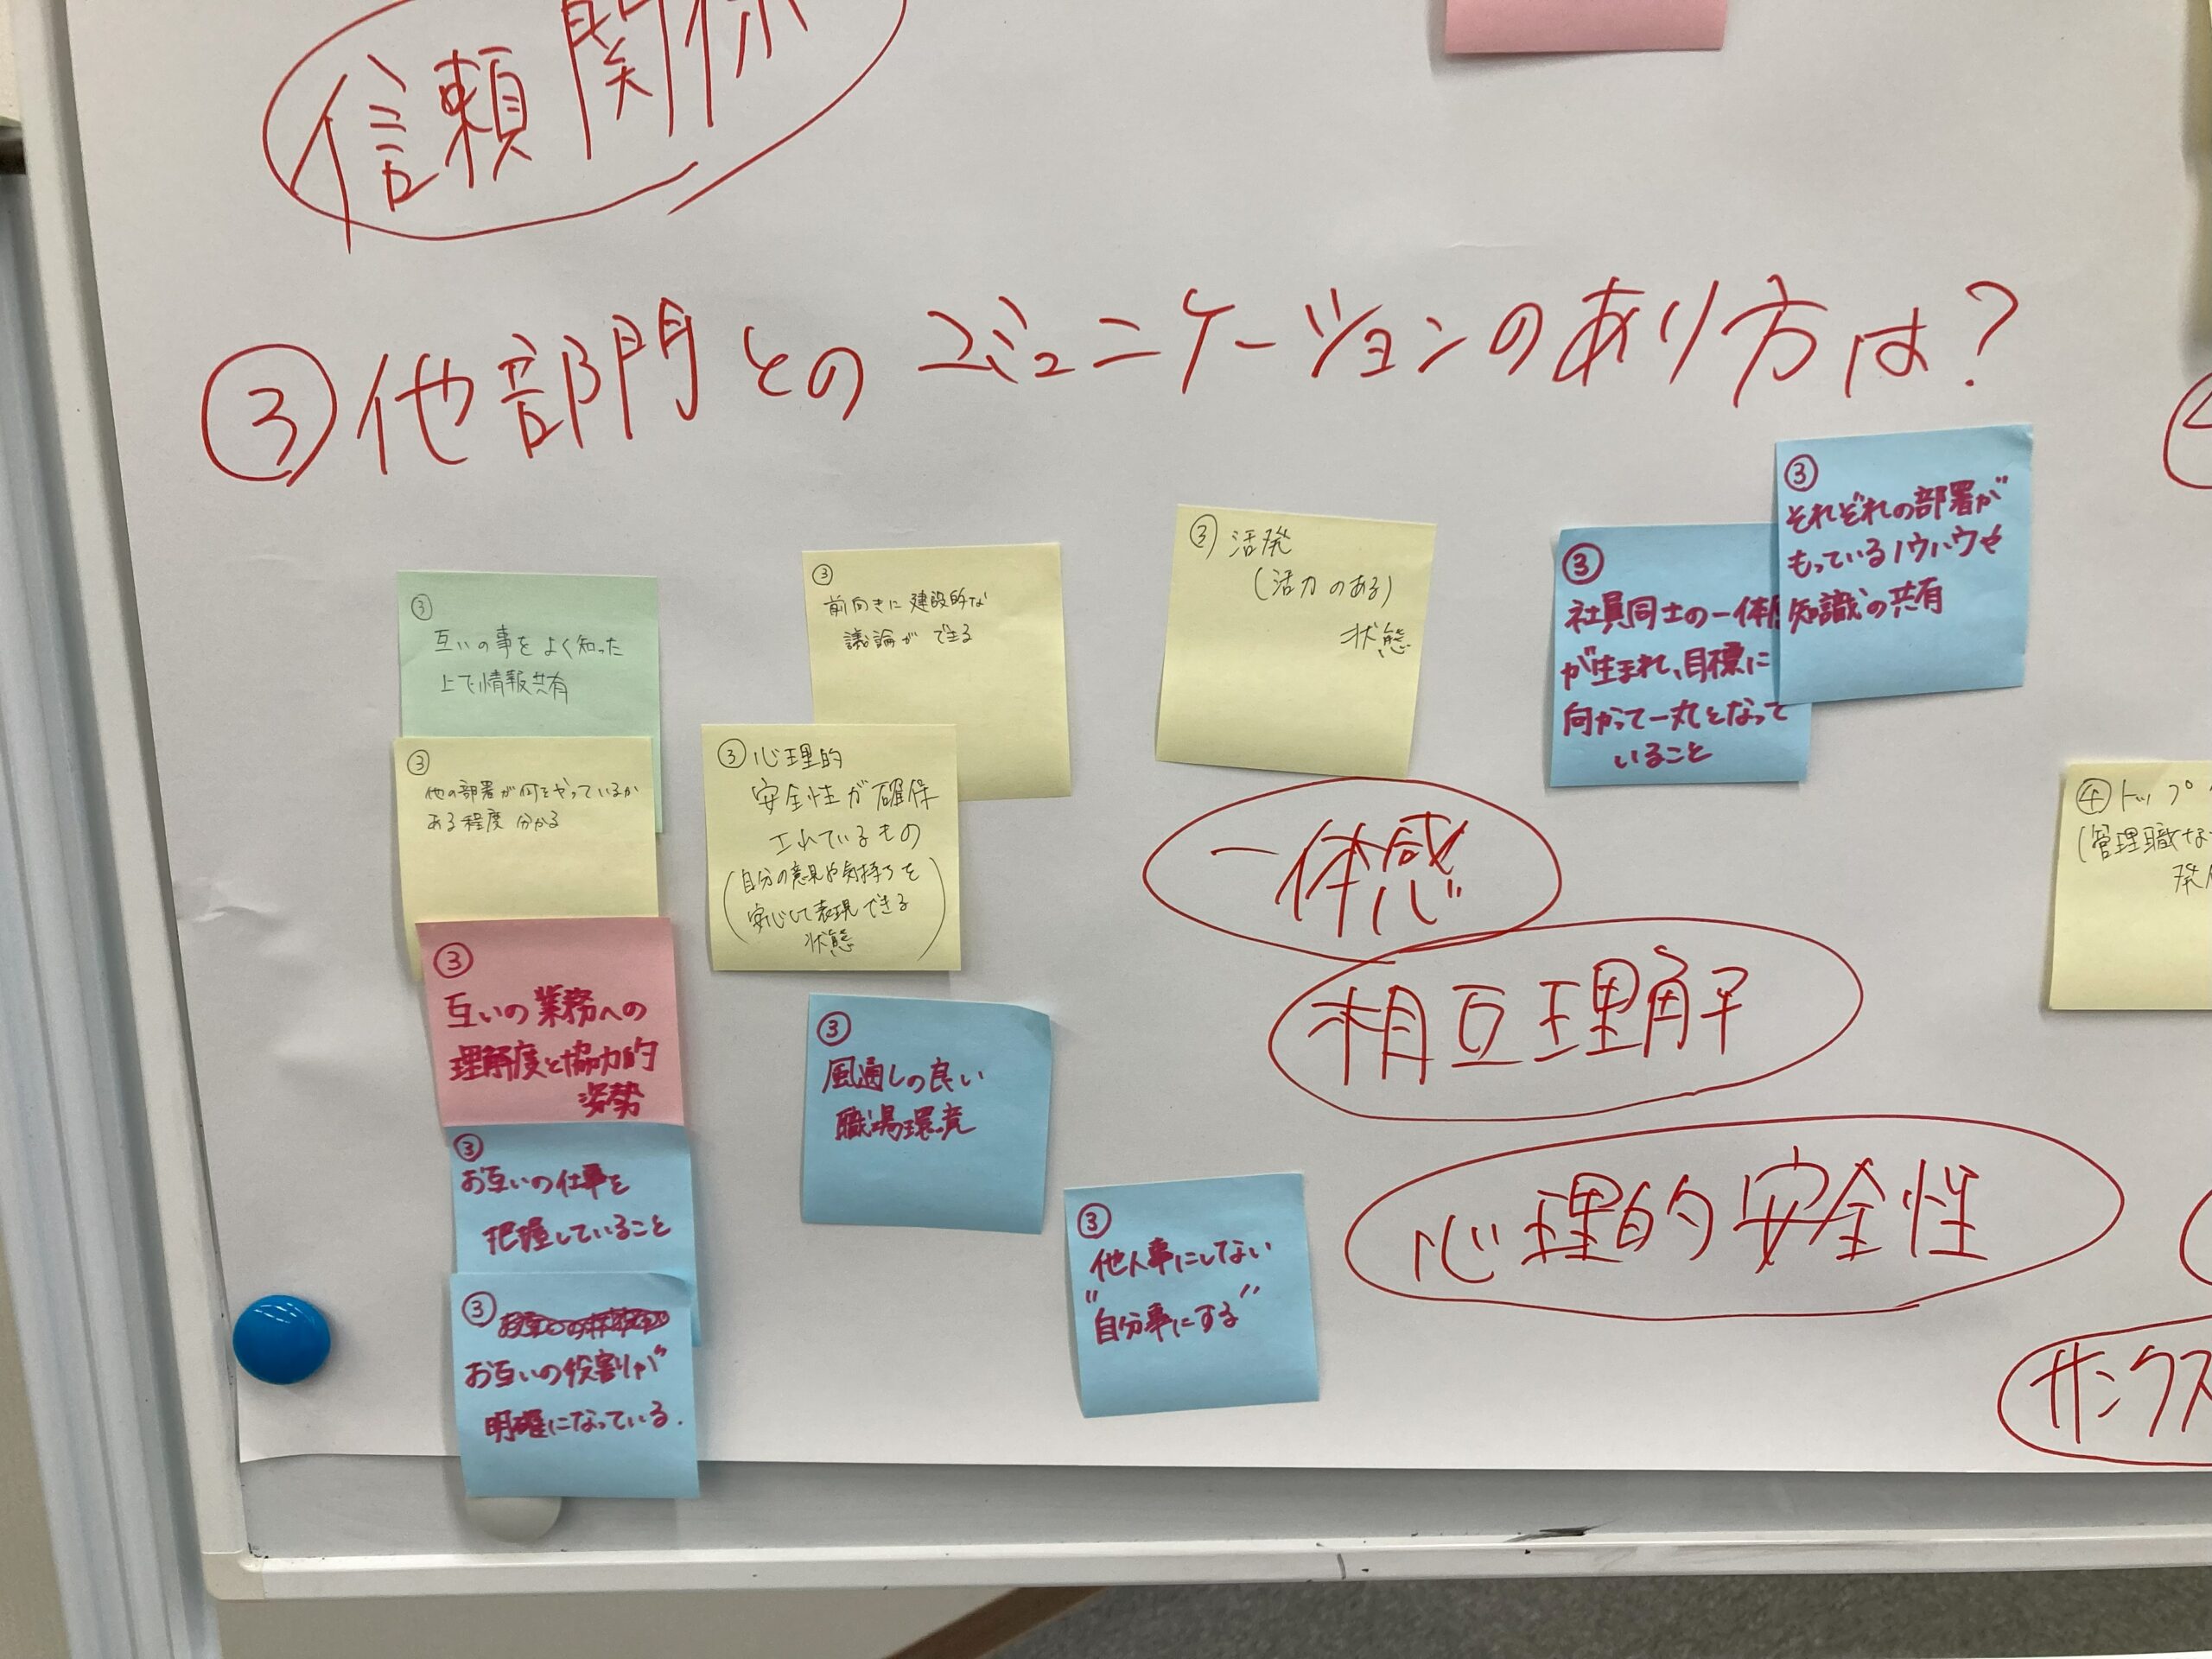 信頼関係
③他部門とのコミュニケーションのあり方は?
③
互いの事をよく知った
上で情報共有
③
他の部署が何をやっているか
ある程度 分かる
③
互いの業務への
理解度と協力的
姿勢
③
お互いの仕事を
把握していること
③
お互いの役割が
明確になっている.
③
前向きに建設的な
議論が できる
③ 心理的
安全性が確保
されているもの
(自分の意見や気持ちを
安心して表現できる
状態)
③
風通しの良い
職場環境
③
他人事にしてない
"自分事にする"
③ 活発
(活力のある)
状態
③
社員同士の一体
が生まれ、目標に
向かって一丸となって
いること
③
それぞれの部署が
もっているノウハウや
知識の共有
一体感
相互理解
心理的安全性
④トップ
(管理職な
発
サンクス